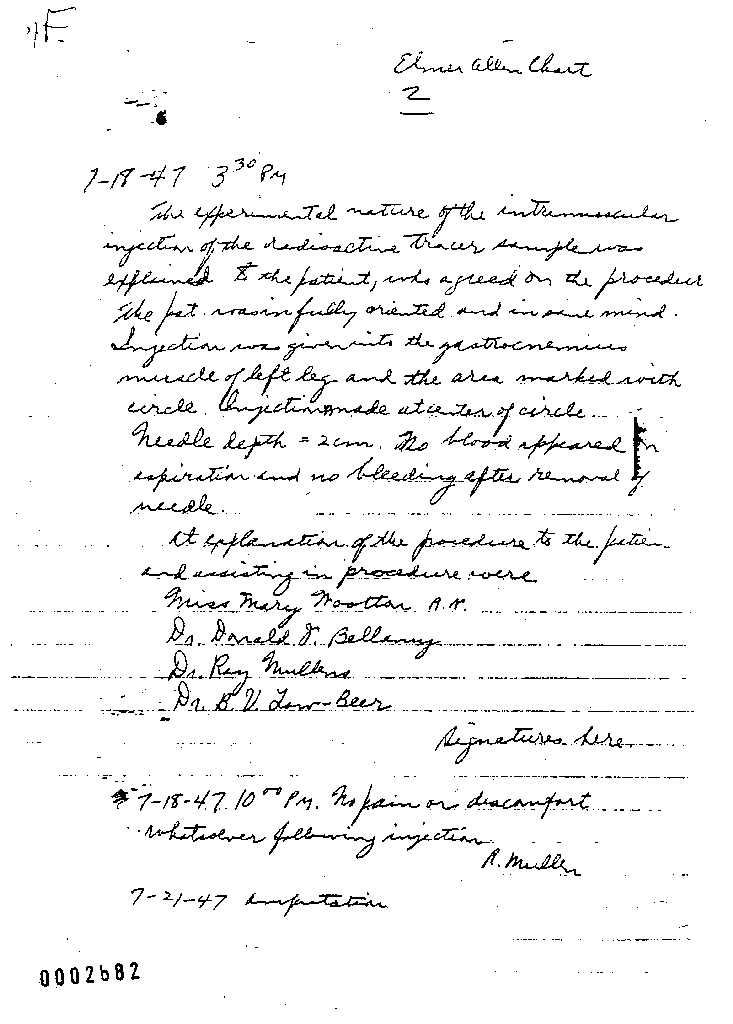 F.
Elmer Allen Chart
2
7-18-47 3 30 PM
The experimental nature of the intramuscular
injection of the radioactive tracer sample was
explained to the patient, who agreed on the procedure
The pat. was in fully oriented and in sane mind.
Injection was given into the gastrocnemius
muscle of left leg and the area marked with
circle. Injection made at center of circle.
Needle depth = 2cm. No blood appeared on
aspiration and no bleeding after removal of
needle.
At explanation of the procedure to the patien
and assisting in procedure were
Miss Mary Wootton R.N.
Dr. Donald V. Bellamy
Dr. Ray Mullens
Dr. B. V. Low-Beer
Signatures here
7-18-47 10 00 PM. No pain or discomfort
whatsoever following injection
R. Mullen
7-21-47 Amputation
0002682